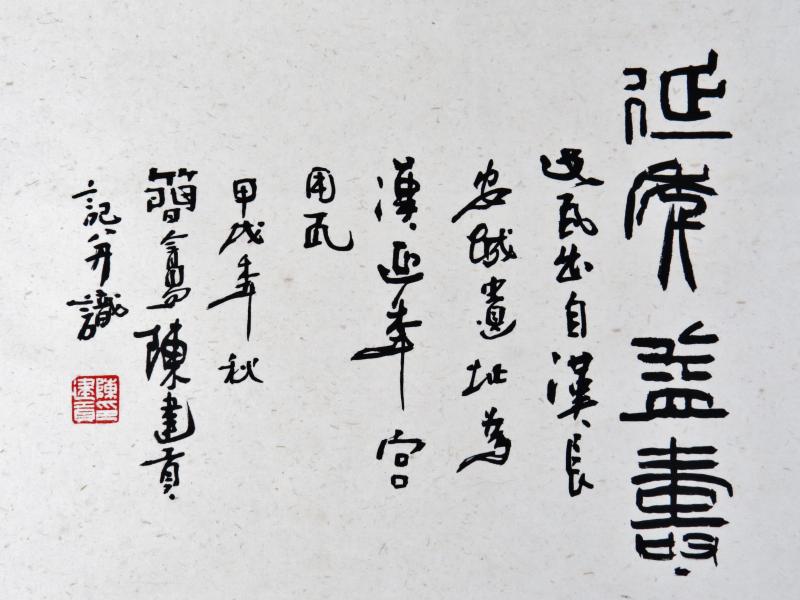 延年益壽
瓦出自漢長
安城遺址為
漢延年宮
用瓦
甲戌年秋
簡陳建貢
記并識
陳印建貢